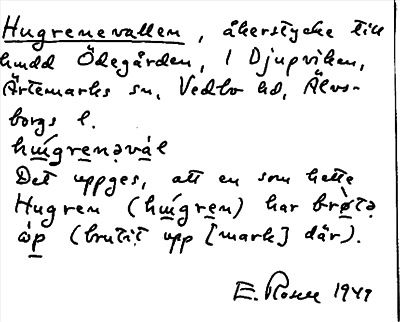 Hugrenevallen, åkerstycke till
hmdd Ödegården, i Djupviken,
Ärtemarks sn, Vedbo hd, Älvs-
borgs l.
hú̲grenəvál
Det uppges, att en som hette
Hugren (hú̲gre̲n) har brø̲̀tə
ò̲p (brutit upp [mark] där).
E. 1949